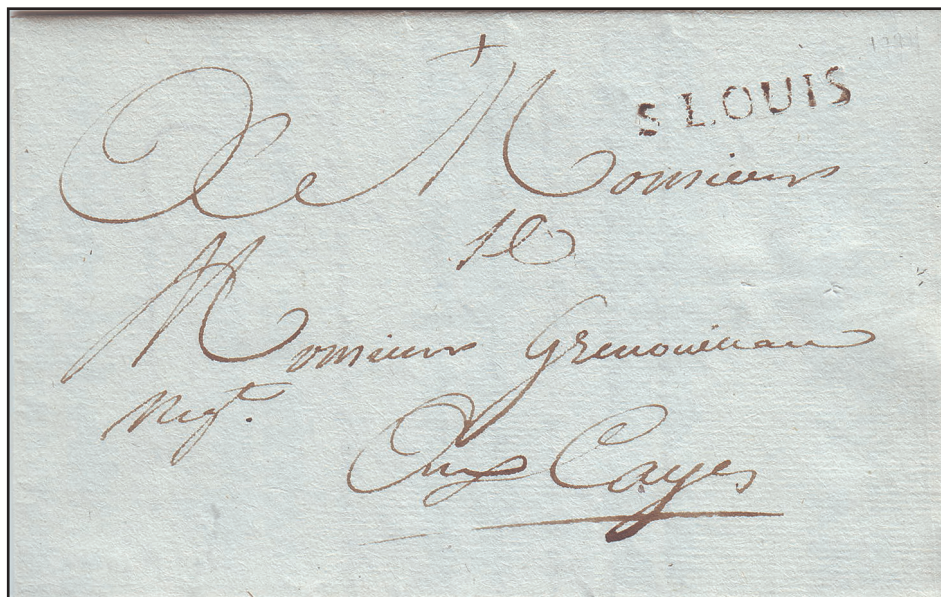 S LOUIS
A Monsieur
Monsieur Grenouilleau
Negt.
Aux Cayes